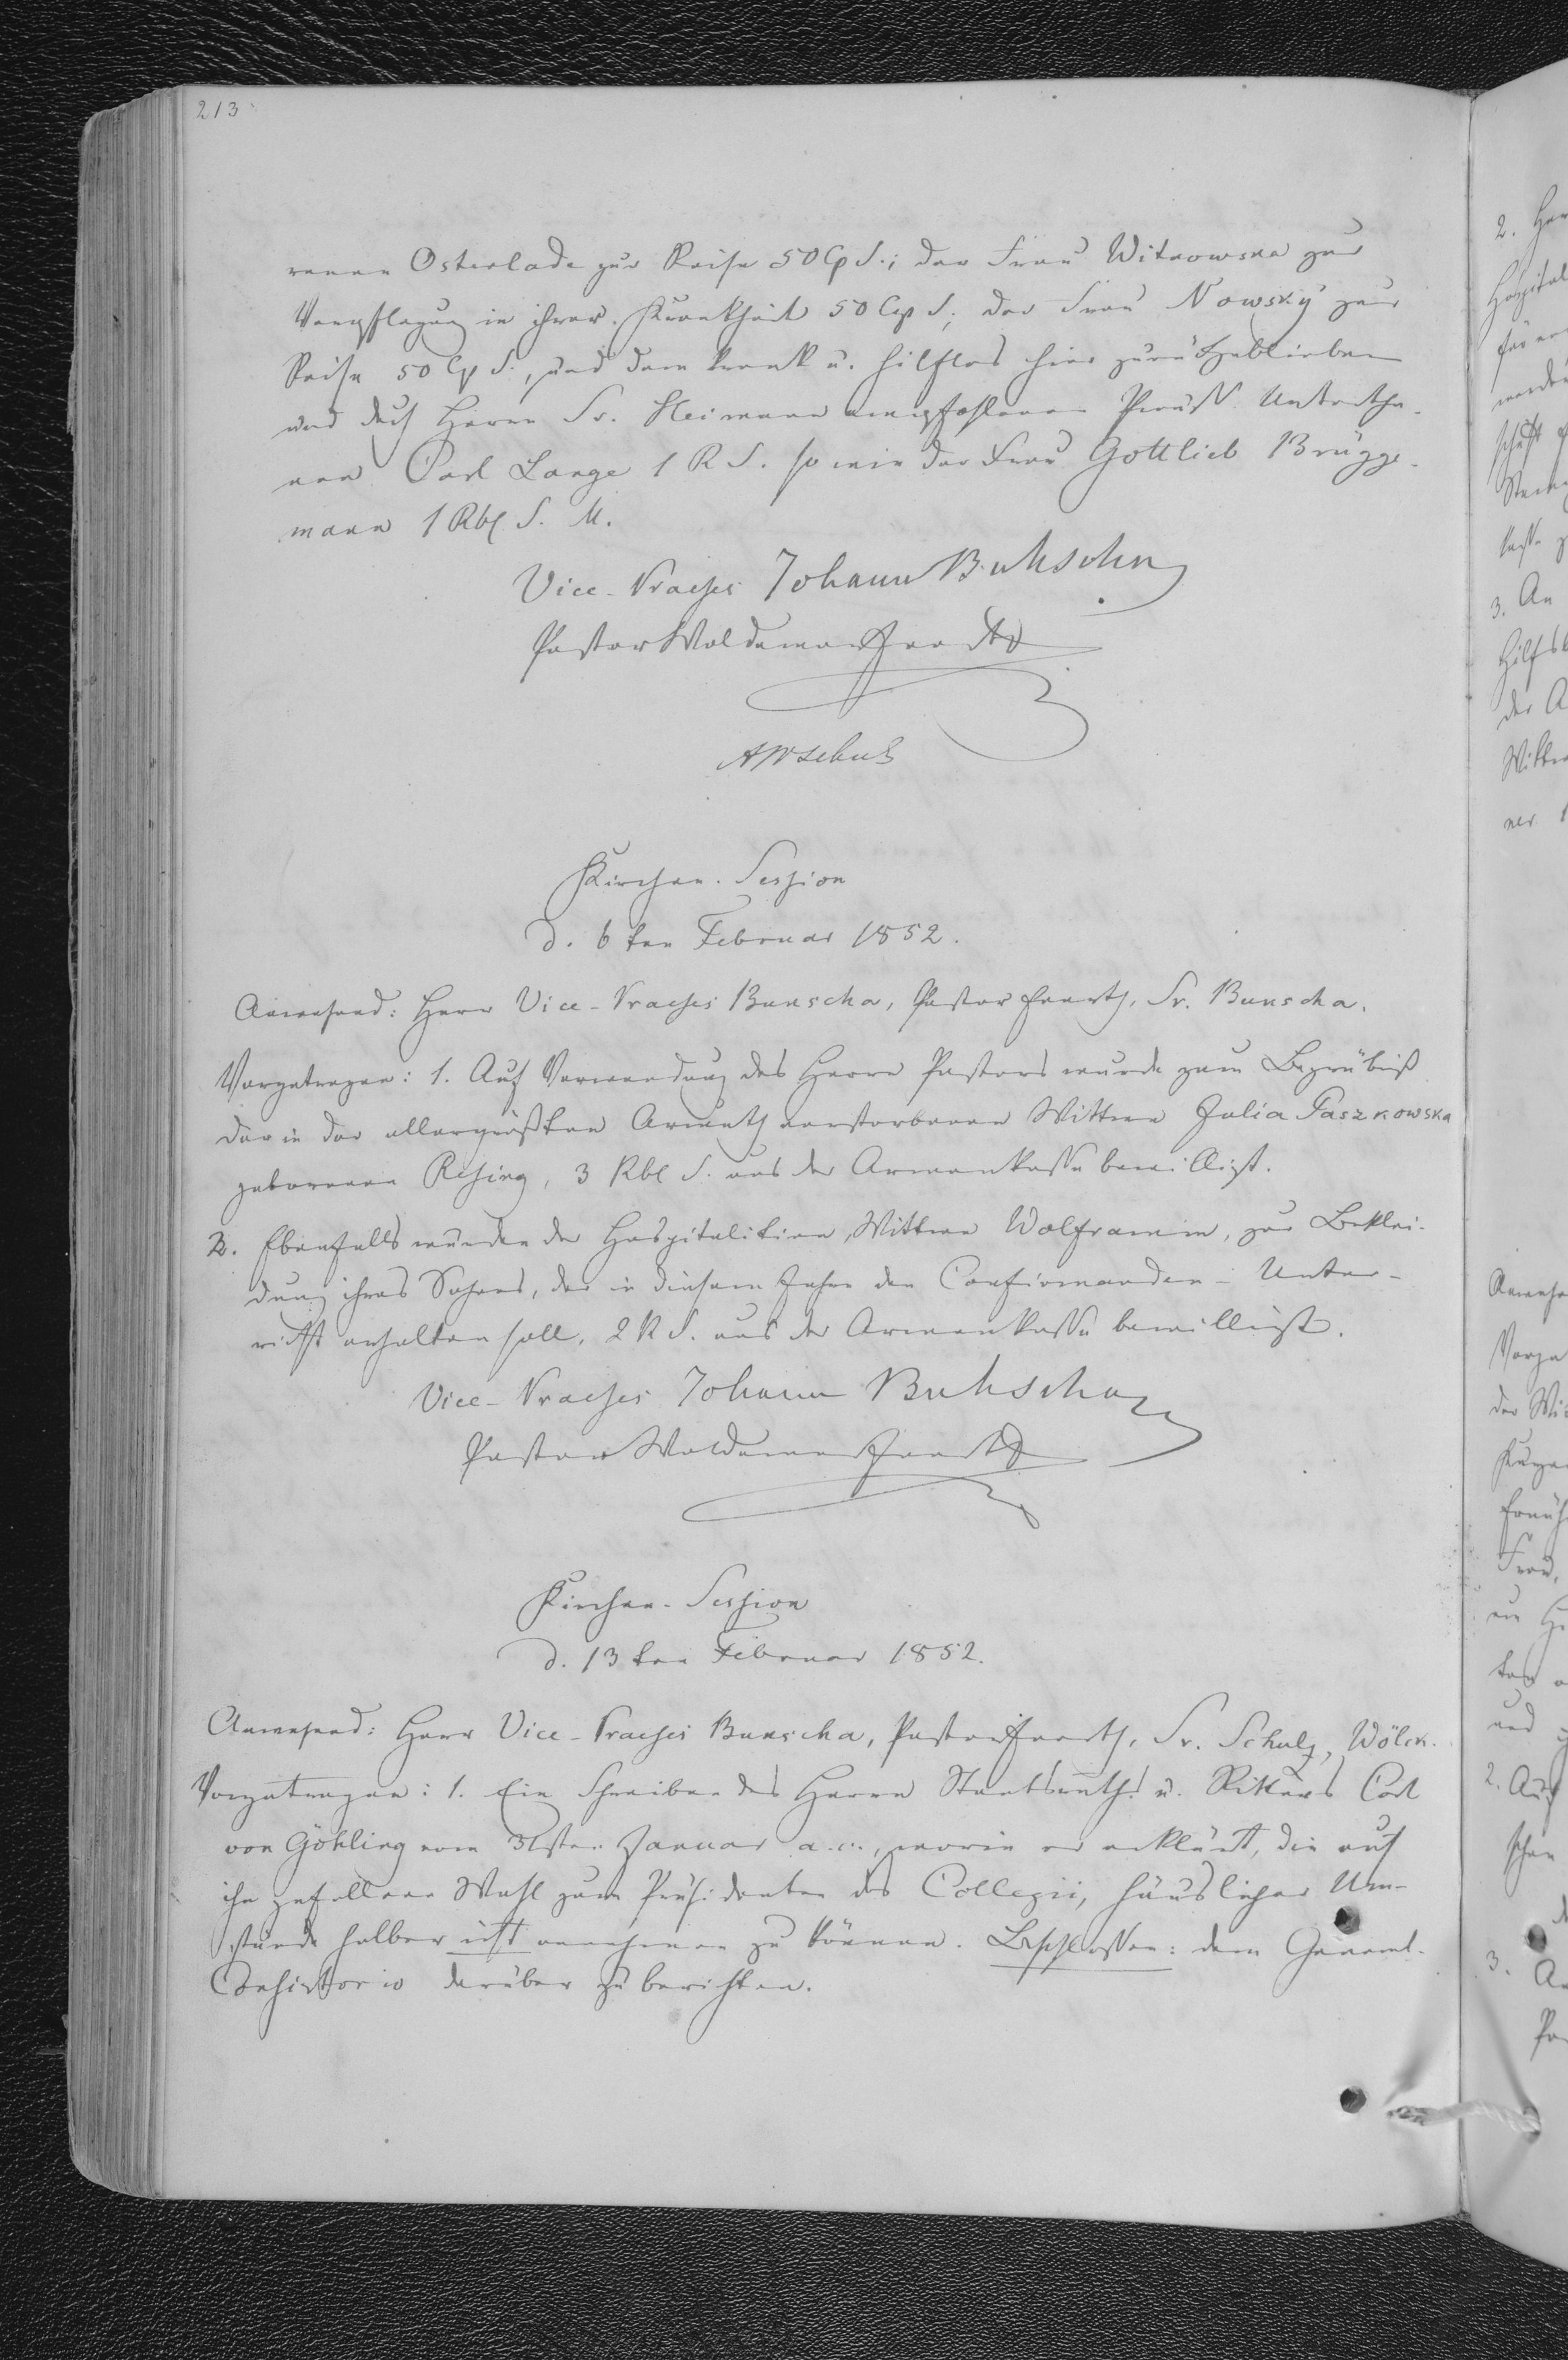 213
renen Osterlode zur Reise 50 Cp S.; der Frau Witkowska zur
Verpflegung in ihrer Krankheit 50 Cp S; der Frau Nowsky zur
Reise 50 Cp S., und dem krank u. hilflos hier zurückgebliebenen
und durch Herrn Sr. Heimann empfohlenen Preuß. Untertha-
nen Carl Lange 1 R S. so wie der Frau Gottlieb Brügge-
mann 1 Rbl S. M.
Vice-Praeses Johann Buksohn
Pastor Woldemar
AWSchulz
Kirchen-Session
d. 6ten Februar 1852.
Anwesend: Herr Vice-Praeses Bunscha, Pastor Everth, Sr. Bunscha.
Vorgetragen: 1. Auf Verwendung des Herrn Pastors wurde zum Begräbniß
der in der allergrößten Armuth verstorbenen Wittwe Julia Paszkowska
geborenen Resing, 3 Rbl S. aus der Armenkasse bewilligt.
2. Ebenfalls wurden der Hospitalitin, Wittwe Wolframm, zur Beklei-
dung ihres Sohnes, der in diesem Jahre den Confirmanden-Unter-
richt erhalten soll, 2 R S. aus der Armenkasse bewilligt.
Vice-Praeses Johann Bukscha
Pastor Woldemar
Kirchen-Session
d. 13ten Februar 1852.
Anwesend: Herr Vice-Praeses Bunscha, Pastor Everth, Sr. Schulz, Wölck.
Vorgetragen: 1. Ein Schreiben des Herrn Staatsraths u. Ritters Carl
von Göhling vom 31sten Januar a. c., worin er erklärt, die auf
ihn gefallene Wahl zum Präsidenten des Collegii, häuslicher Um-
stände halber nicht annehmen zu können. Beschlossen: dem General-
Consistorio darüber zu berichten.